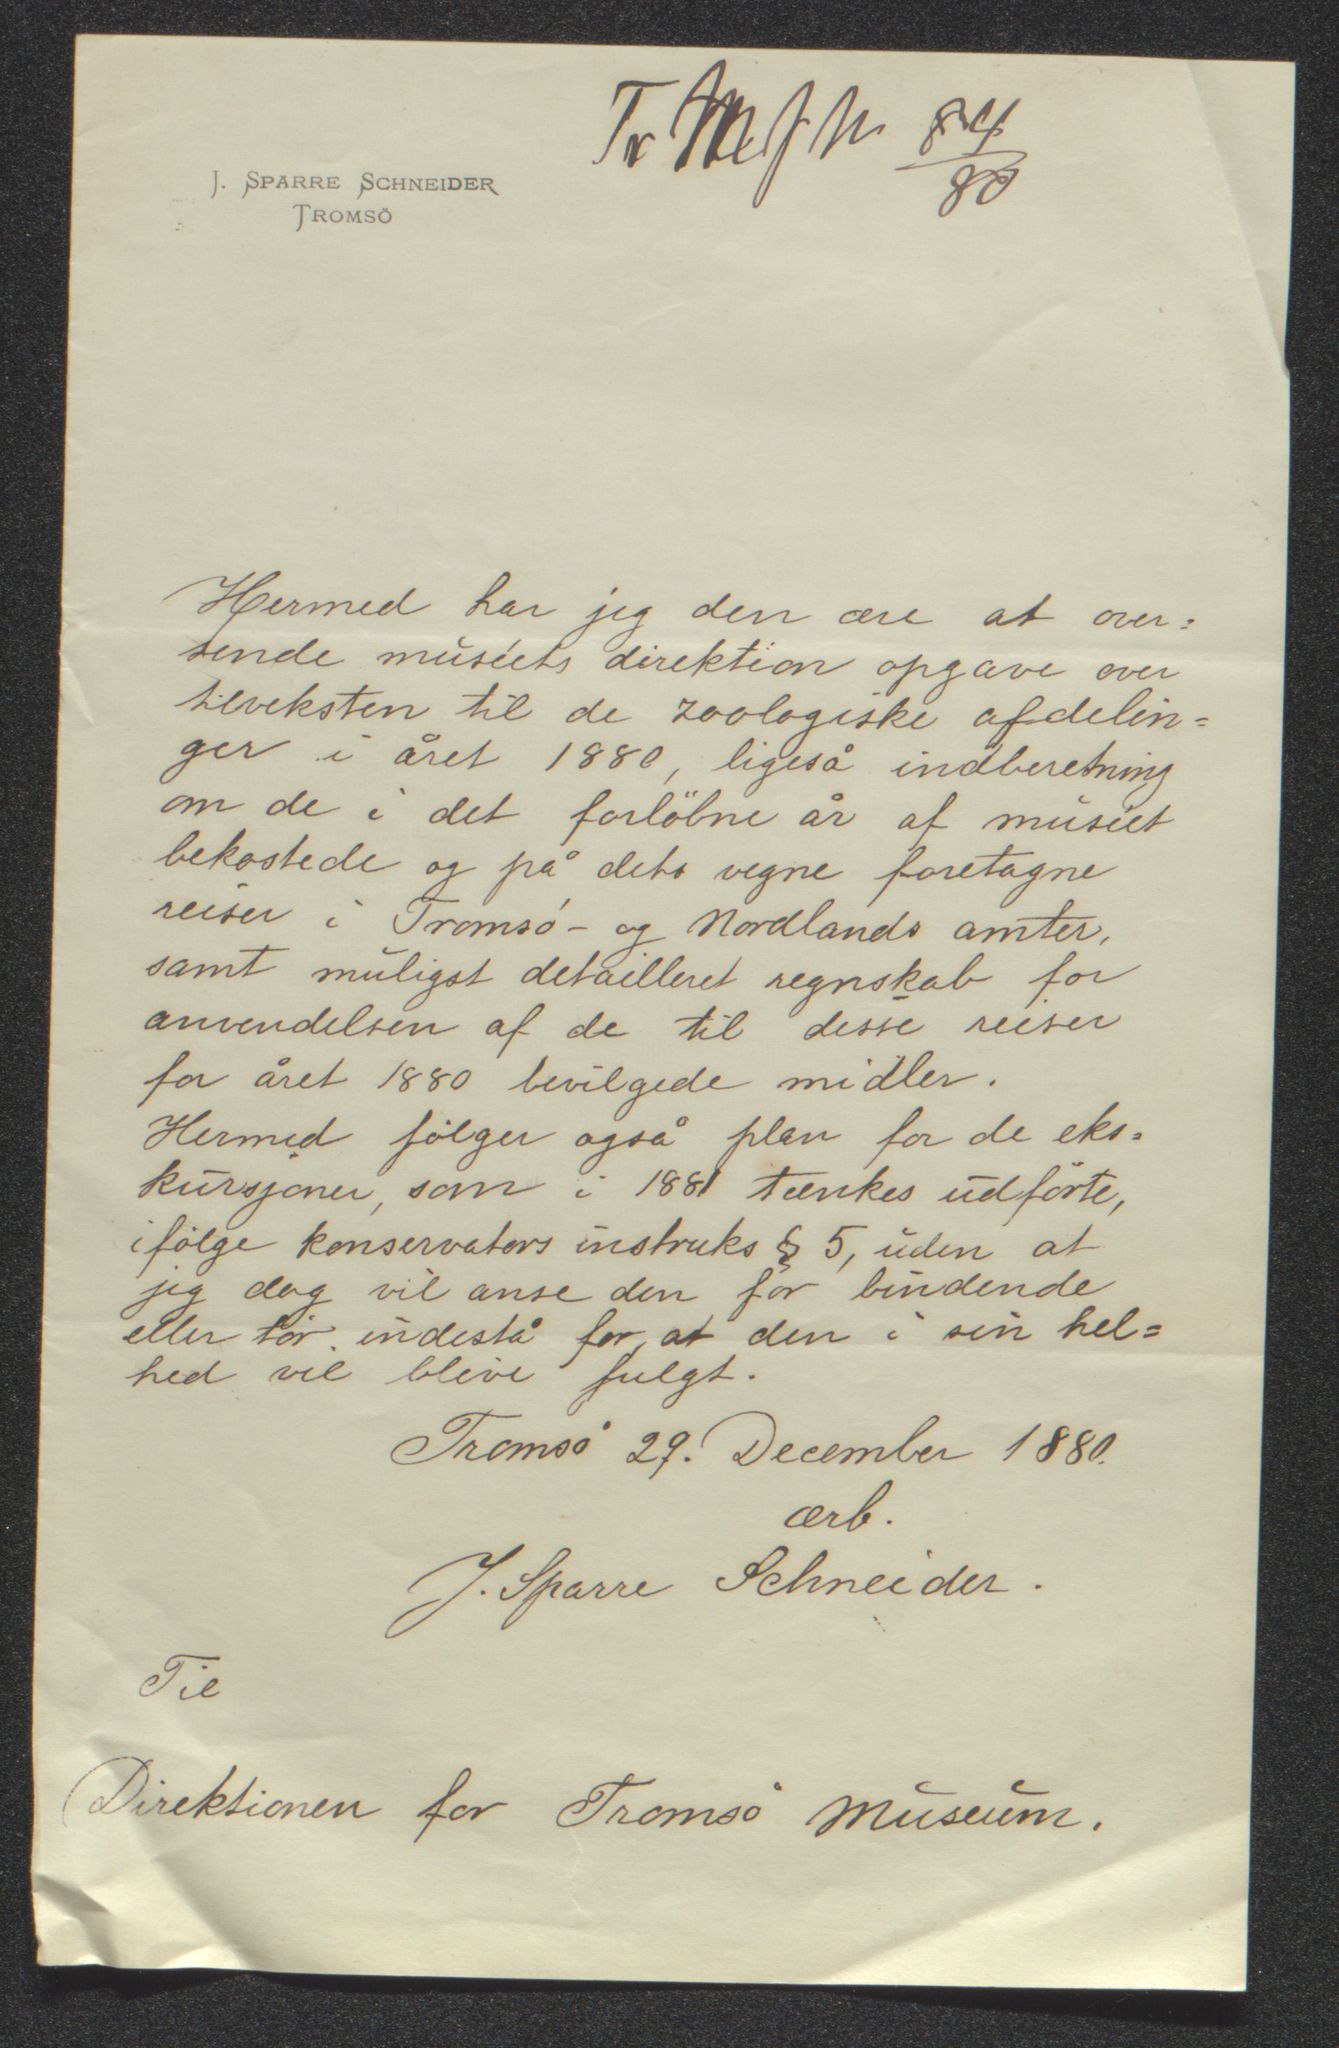 Tr M J N 84
80
J. SPARRE SCHNEIDER
TROMSÖ
Hermed har jeg den ære at over=
sende muséets direktion opgave over
tilveksten til de zoologiske afdelin=
ger i året 1880, ligeså indberetning
om de i det forlöbne år af muséet
bekostede og på dets vegne foretagne
reiser i Tromsö- og Nordlands amter,
samt muligst detailleret regnskab for
anvendelsen af de til disse reiser
for året 1880 bevilgede midler.
Hermed fölger også plan for de eks=
kursjoner, som i 1881 tænkes udförte,
ifölge konservators instruks § 5, uden at
jeg dog vil anse den for bindende
eller tör indestå for, at den i sin hel=
hed vil blive fulgt.
Tromsö 29. December 1880.
ærb.
J. Sparre Schneider.
Til
Direktionen for Tromsö Museum.